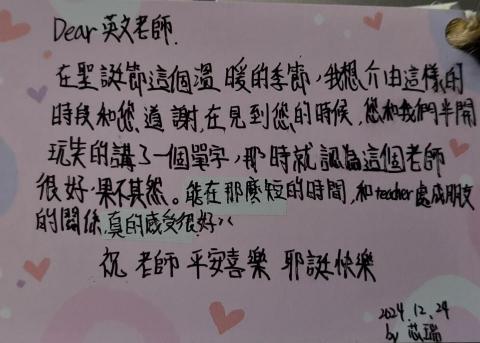 Dear 英文老師.
在聖誕節這個溫暖的季節,我想介由這樣的
時段和您道謝,在見到您的時候,您和我們半開
玩笑的講了一個單字,那時就認為這個老師
很好,果不其然。能在那麼短的時間,和teacher處成朋友
的關係,真的感受很好>
祝 老師 平安喜樂 耶誕快樂
2024.12.24
by 芯瑞